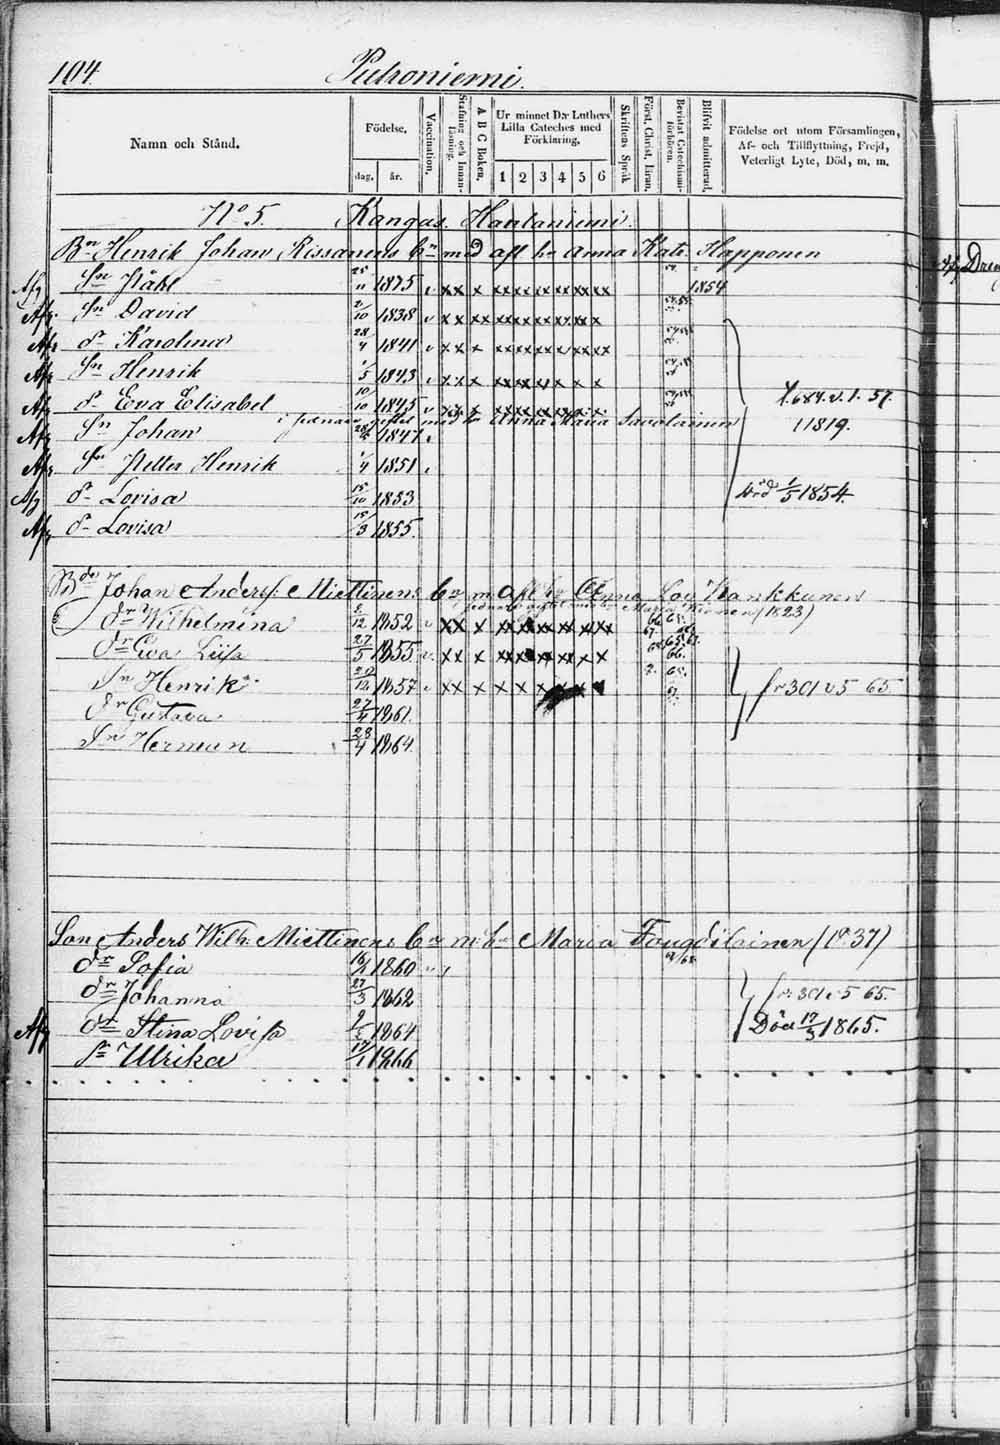 104.
Putroniemi.
Namn och Stånd.
Födelse,
dag.
år.
Vaccination.
Stafning och Innanläsning.
A B C Boken.
Ur minnet D:r Luthers Lilla Cateches med Förklaring.
1 2 3 4 5 6
Skriftens Språk
Först. Christ. Läran.
Bevistat Catechismi-förhören.
Blifvit admitterad.
Födelse ort utom Församlingen, Af- och Tillflyttning, Frejd, Veterligt Lyte, Död, m. m.
No 5. Kangas. Hautaniemi.
Bn Henrik Johan Rissanens bn med afl. h. Anna Kata Happonen
Afg Sn Påhl 25/11 1835 1854
Afg. Sn David 2/10 1838
Afg dr Karolina 28/4 1841
Afg Sn Henrik 1/5 1843
Afg dr Eva Elisabet 10/10 1845 f. 684. v. 1. 57.
i sednare giftet med h. Anna Maria Savolainen 11819.
Afg Sn Johan 1847
Afg Sn Petter Henrik 1/4 1851
Afg dr Lovisa 15/10 1853 död 1/5 1854.
Afg dr Lovisa 15/3 1855.
Bde Johan Anderss: Miettinens bn m. afl. h. Anna Lov Karkkunen
i sednare giftet med h. Maria (1823)
dr Wilhelmina 1852
dr Eva Liisa 27/5 1855
Sn Henrik 1857 fr 301 v 5 65.
dr Gustava 27/4 1861.
Sn Herman 28/4 1864.
Son Anders Wilh: Miettinens bn m. h. Maria Fougdilainen (1837)
dr Sofia 1860
dr Johanna 27/3 1862 fr. 301 v 5 65.
Afg dr Stina Lovisa 1864 Död 17/3 1865.
dr Ulrika 17/1 1866